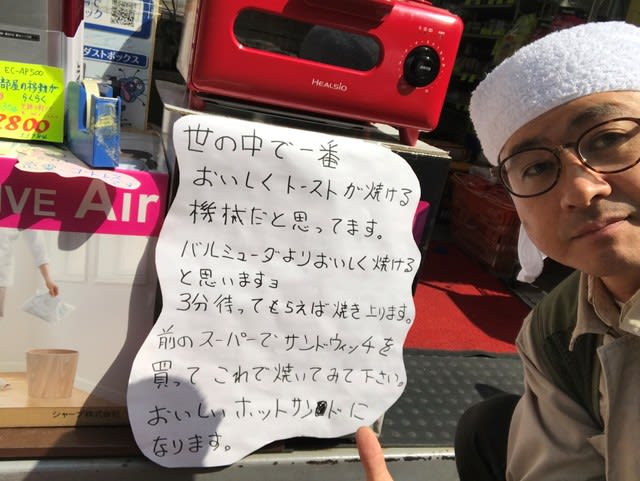 EC-AP500
部屋の移動が
らくらく
2800
ダストボックス
HEALSIO
世の中で一番
おいしくトーストが焼ける
機械だと思ってます。
バルミューダよりおいしく焼ける
と思いますョ
3分待ってもらえば焼き上ります。
前のスーパーでサンドウィッチを
買って これで焼いてみて下さい。
おいしいホットサンドに
なります。
IVE Air
シャープ株式会社